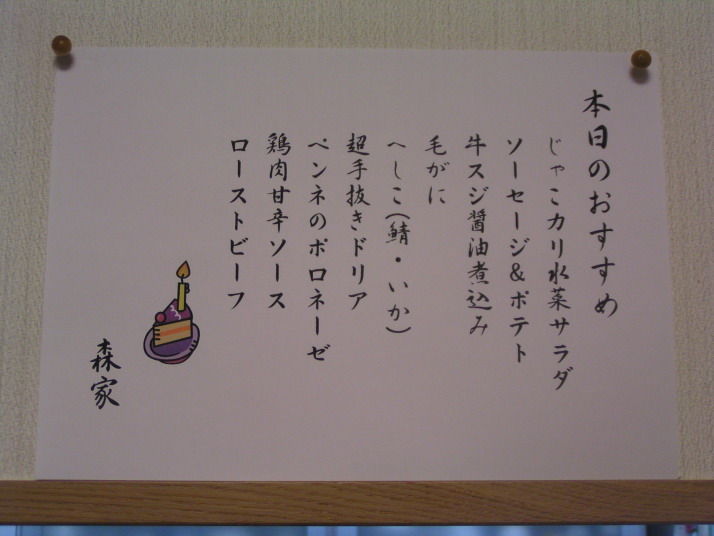 本日のおすすめ
じゃこカリ水菜サラダ
ソーセージ&ポテト
牛スジ醤油煮込み
毛がに
へしこ(鯖・いか)
超手抜きドリア
ペンネのボロネーゼ
鶏肉甘辛ソース
ローストビーフ
森家